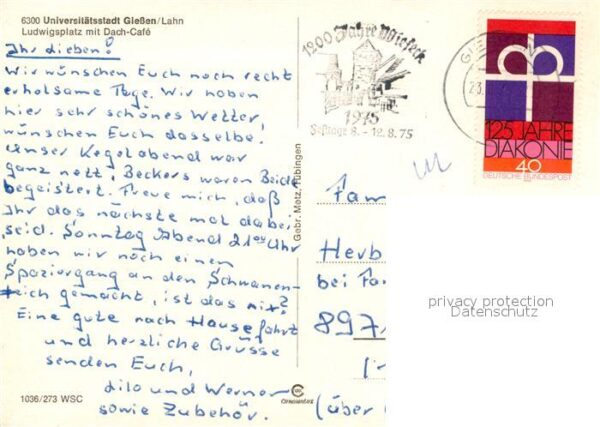 6300 Universitätsstadt Gießen/Lahn
Ludwigsplatz mit Dach-Café
Ihr Lieben!
Wir wünschen Euch noch recht
erholsame Tage. Wir haben
hier sehr schönes Wetter,
wünschen Euch dasselbe.
Unser Kegelabend war
ganz nett, Beckers waren Beide
begeistert. Freue mich, daß
Ihr das nächste mal dabei
seid. Sonntag Abend 21⁰⁰ Uhr
haben wir noch einen
Spaziergang an den Schwanen-
teich gemacht, ist das nix?
Eine gute nach Hause fahrt
und herzliche Grüsse
senden Euch,
Lilo und Werner
sowie Zubehör.
1036/273 WSC
Gebr. Metz, Tübingen
1200 Jahre Wieseck
1975
Festtage 8. - 12.8.75
GIE
23.
125 JAHRE
DIAKONIE
40
DEUTSCHE BUNDESPOST
Fam
Herb
bei Fa
897
(über
privacy protection
Datenschutz